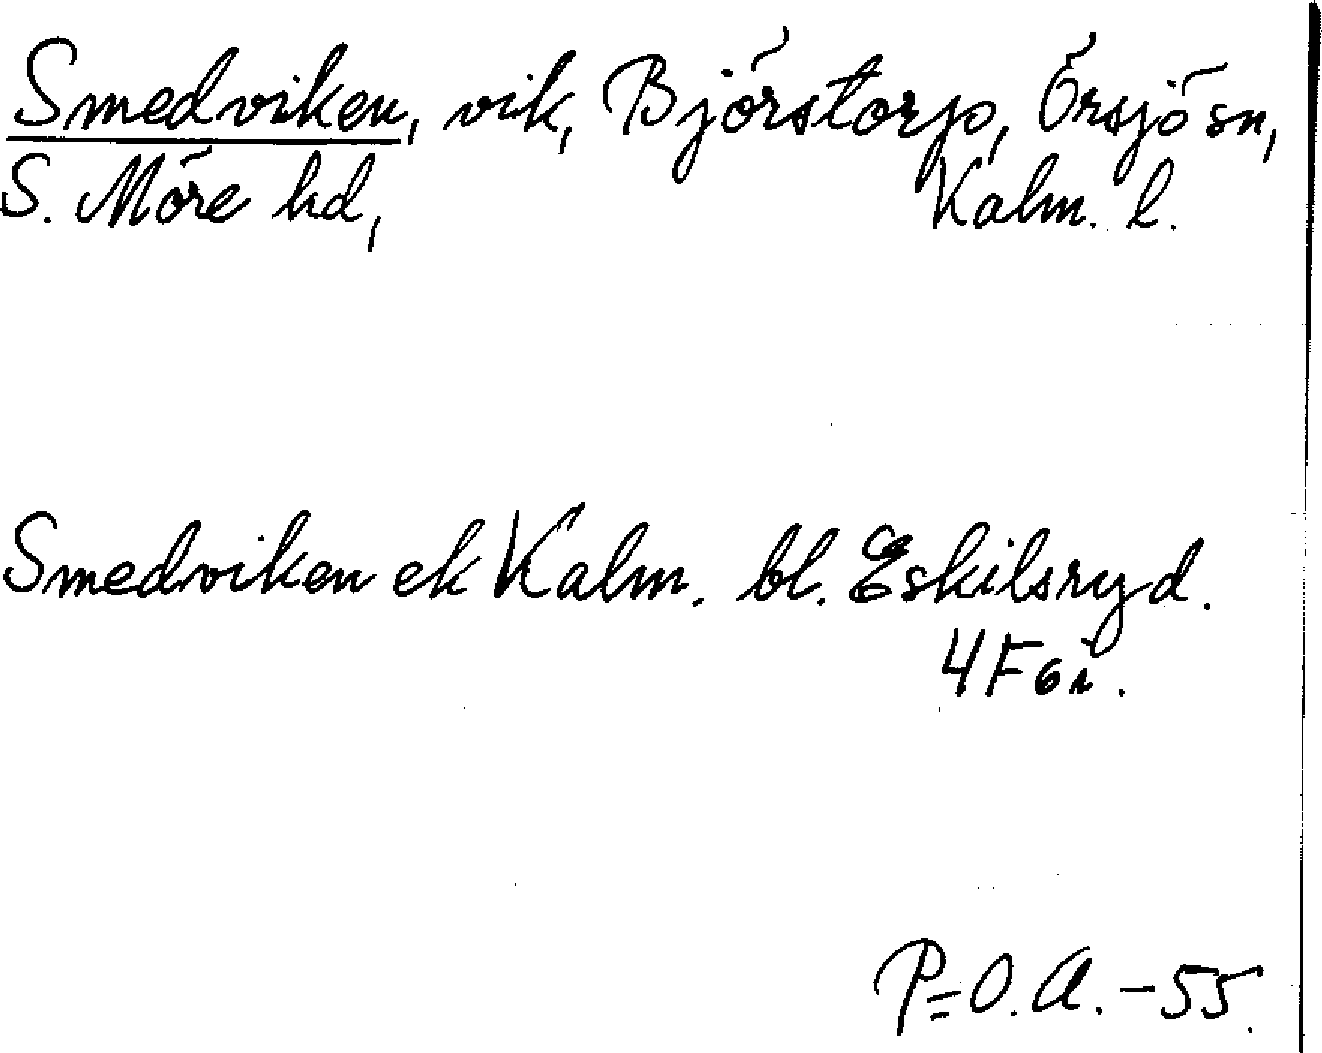 Smedviken, vik, Björstorp, Örsjö sn,
S. Möre hd, Kalm. l.
Smedviken ek Kalm. bl. Eskilsryd.
4F6i.
P=O.A.-55.